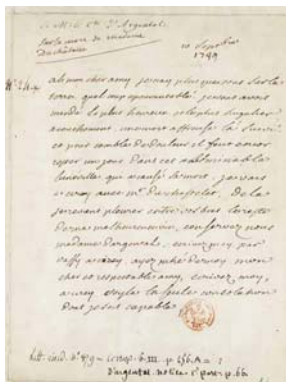 a M. le Cte D'Argental
sur la mort de madame
Duchatelet
10 Septembre
1749
ah mon cher amy je n'ay plus que vous sur la
terre. quel coup epouvantable! je vous avois
mandé le plus heureux et le plus singulier
accouchement, une mort affreuse l'a suivi.
et pour comble de douleur il faut encor
rester un jour dans cet abominable
luneville qui a causé sa mort. je vais
a cirey avec mr duchastelet. de la
je reviens pleurer entre vos bras le reste
de ma malheureuse vie. conservez vous
madame d'argental. ecrivez moy par
vassy a cirey. ayez pitié de moy mon
cher et respectable amy. ecrivez moy
a cirey voyla la seule consolation
dont je sois capable.